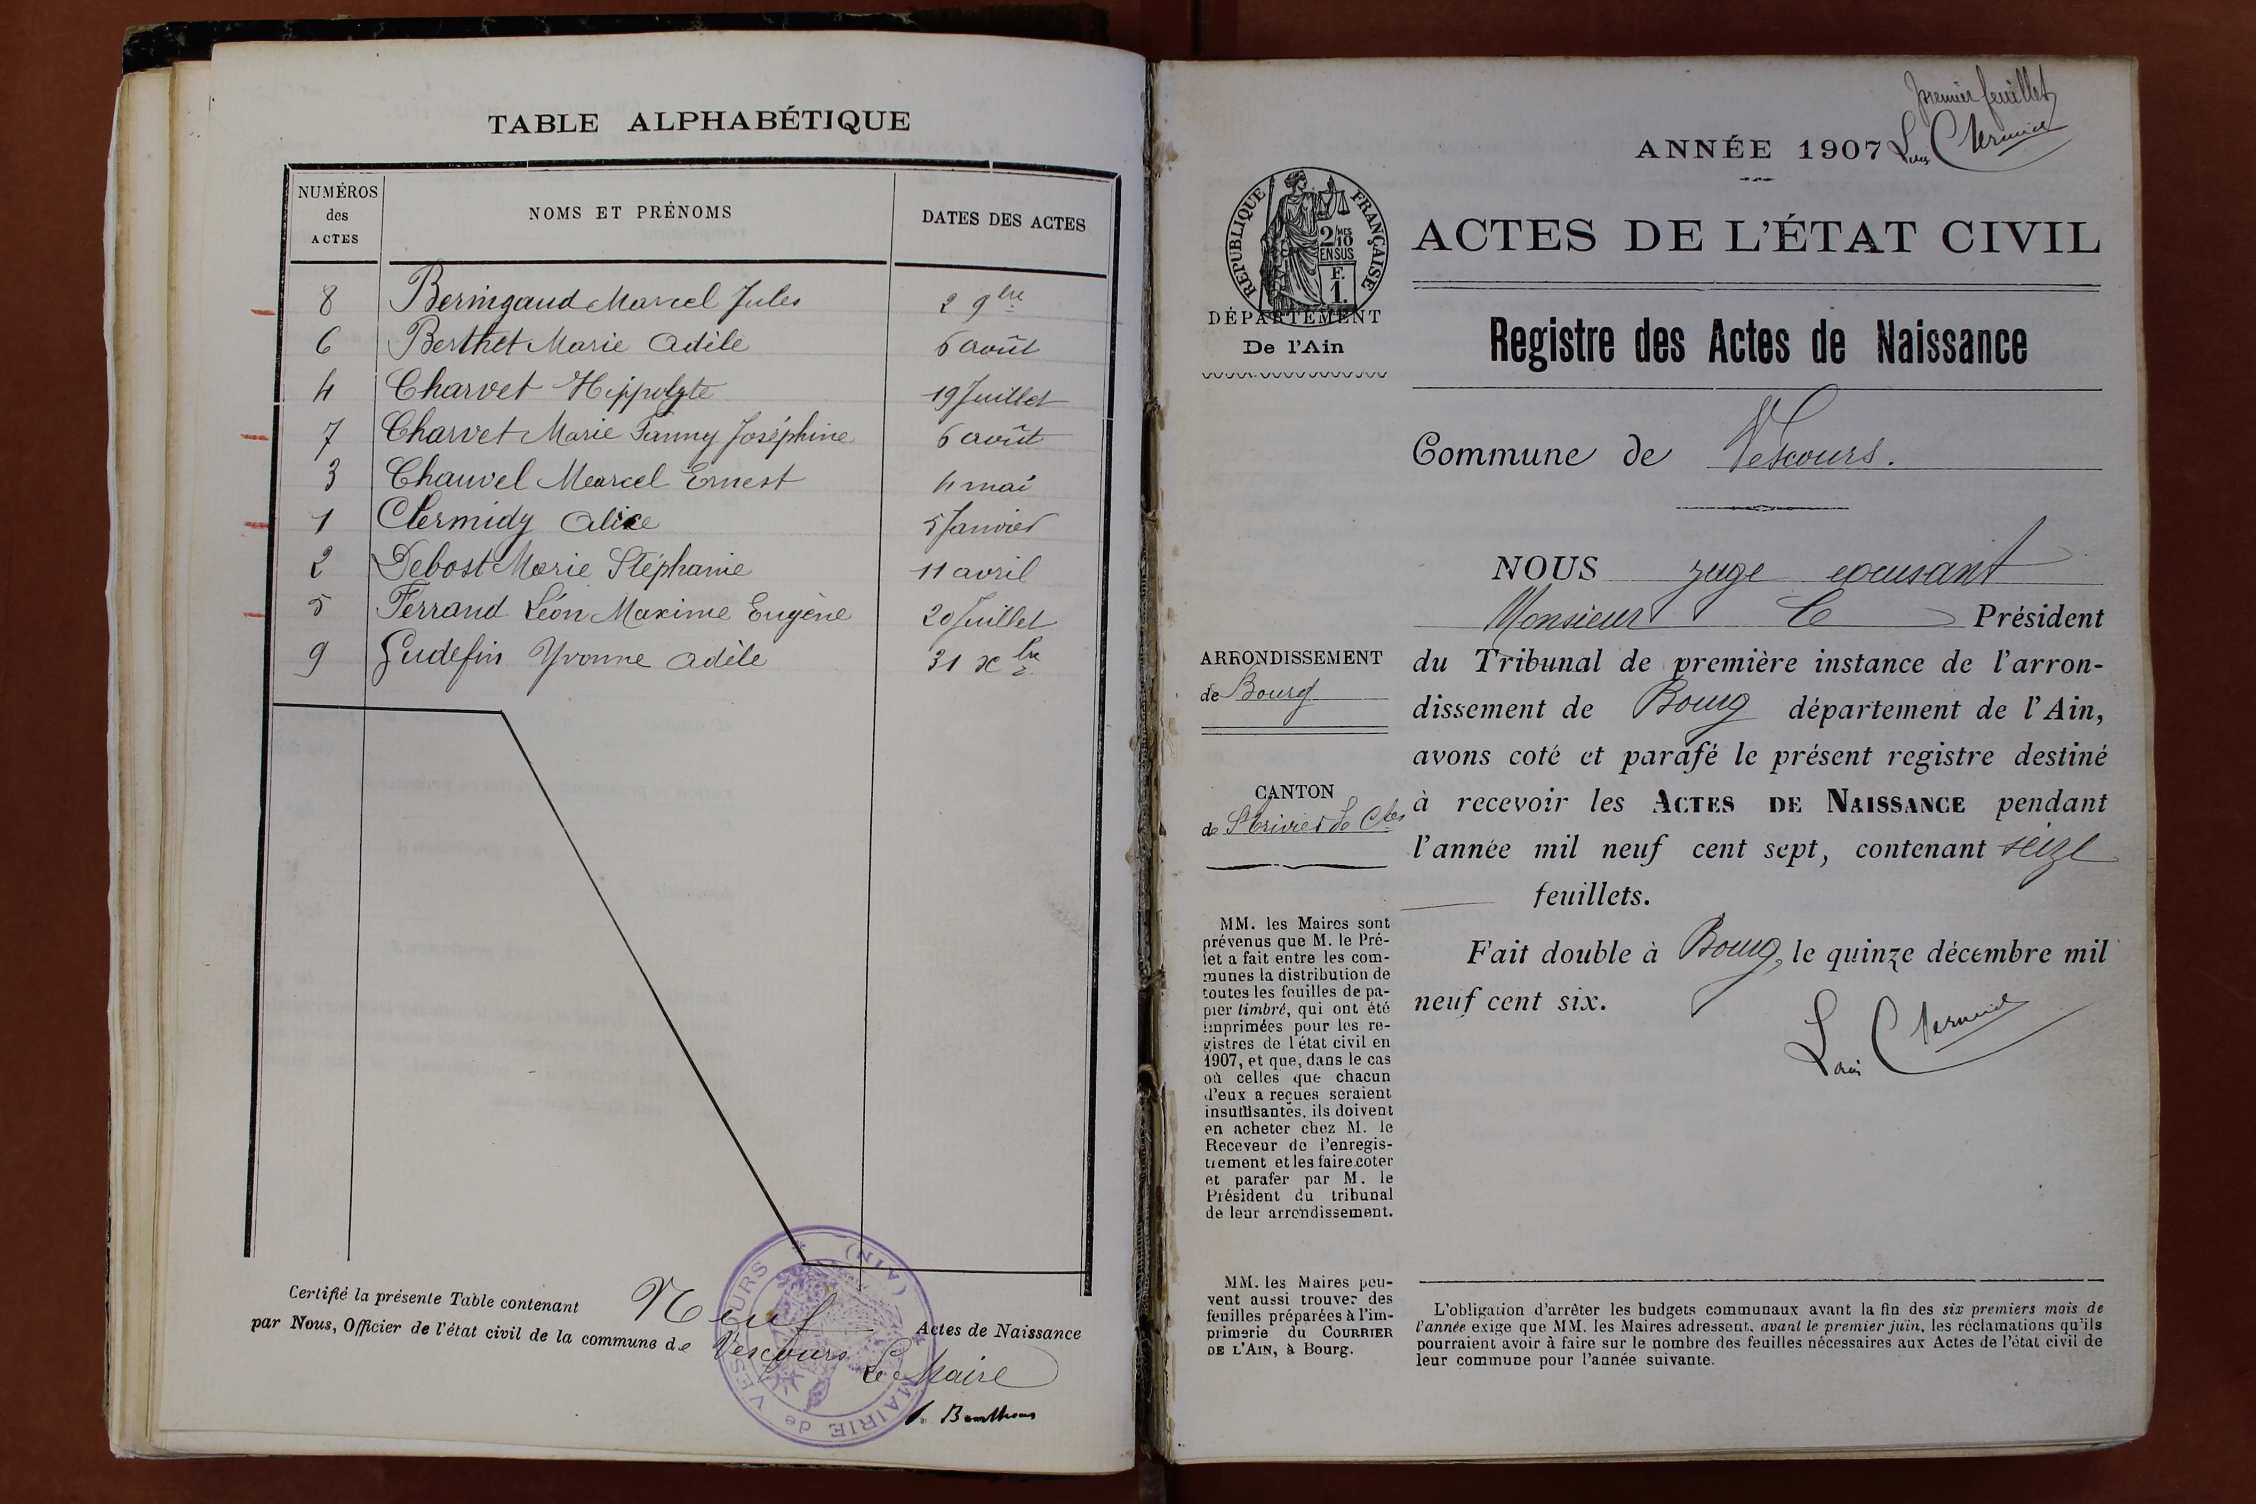 TABLE ALPHABÉTIQUE
NUMÉROS des ACTES
NOMS ET PRÉNOMS
DATES DES ACTES
8 Beringaud Marcel Jules 2 9bre
6 Berthet Marie Adèle 6 août
4 Charvet Hippolyte 19 Juillet
7 Charvet Marie Fanny Joséphine 6 août
3 Chauvel Marcel Ernest 4 mai
1 Clermidy Alice 5 Janvier
2 Debost Marie Stéphanie 11 avril
5 Ferrand Léon Maxime Eugène 20 Juillet
9 Gudefin Yvonne Adèle 31 xbre
Certifié la présente Table contenant Neuf Actes de Naissance
par Nous, Officier de l'état civil de la commune de Vescours
Le Maire
MAIRIE de VESCOURS (AIN)
premier feuillet
ANNÉE 1907
RÉPUBLIQUE FRANÇAISE
2/10 MES
EN SUS
F.
1.
ACTES DE L'ÉTAT CIVIL
DÉPARTEMENT
De l'Ain
Registre des Actes de Naissance
Commune de Vescours.
NOUS juge excusant
Monsieur le Président
du Tribunal de première instance de l'arron-
dissement de Bourg département de l'Ain,
avons coté et parafé le présent registre destiné
à recevoir les ACTES DE NAISSANCE pendant
l'année mil neuf cent sept, contenant seize
feuillets.
Fait double à Bourg, le quinze décembre mil
neuf cent six.
ARRONDISSEMENT
de Bourg
CANTON
de St Trivier de Ctes
MM. les Maires sont
prévenus que M. le Pré-
fet a fait entre les com-
munes la distribution de
toutes les feuilles de pa-
pier timbré, qui ont été
imprimées pour les re-
gistres de l'état civil en
1907, et que, dans le cas
où celles que chacun
d'eux a reçues seraient
insuffisantes, ils doivent
en acheter chez M. le
Receveur de l'enregis-
trement et les faire coter
et parafer par M. le
Président du tribunal
de leur arrondissement.
MM. les Maires peu-
vent aussi trouver des
feuilles préparées à l'im-
primerie du COURRIER
DE L'AIN, à Bourg.
L'obligation d'arrêter les budgets communaux avant la fin des six premiers mois de
l'année exige que MM. les Maires adressent, avant le premier juin, les réclamations qu'ils
pourraient avoir à faire sur le nombre des feuilles nécessaires aux Actes de l'état civil de
leur commune pour l'année suivante.